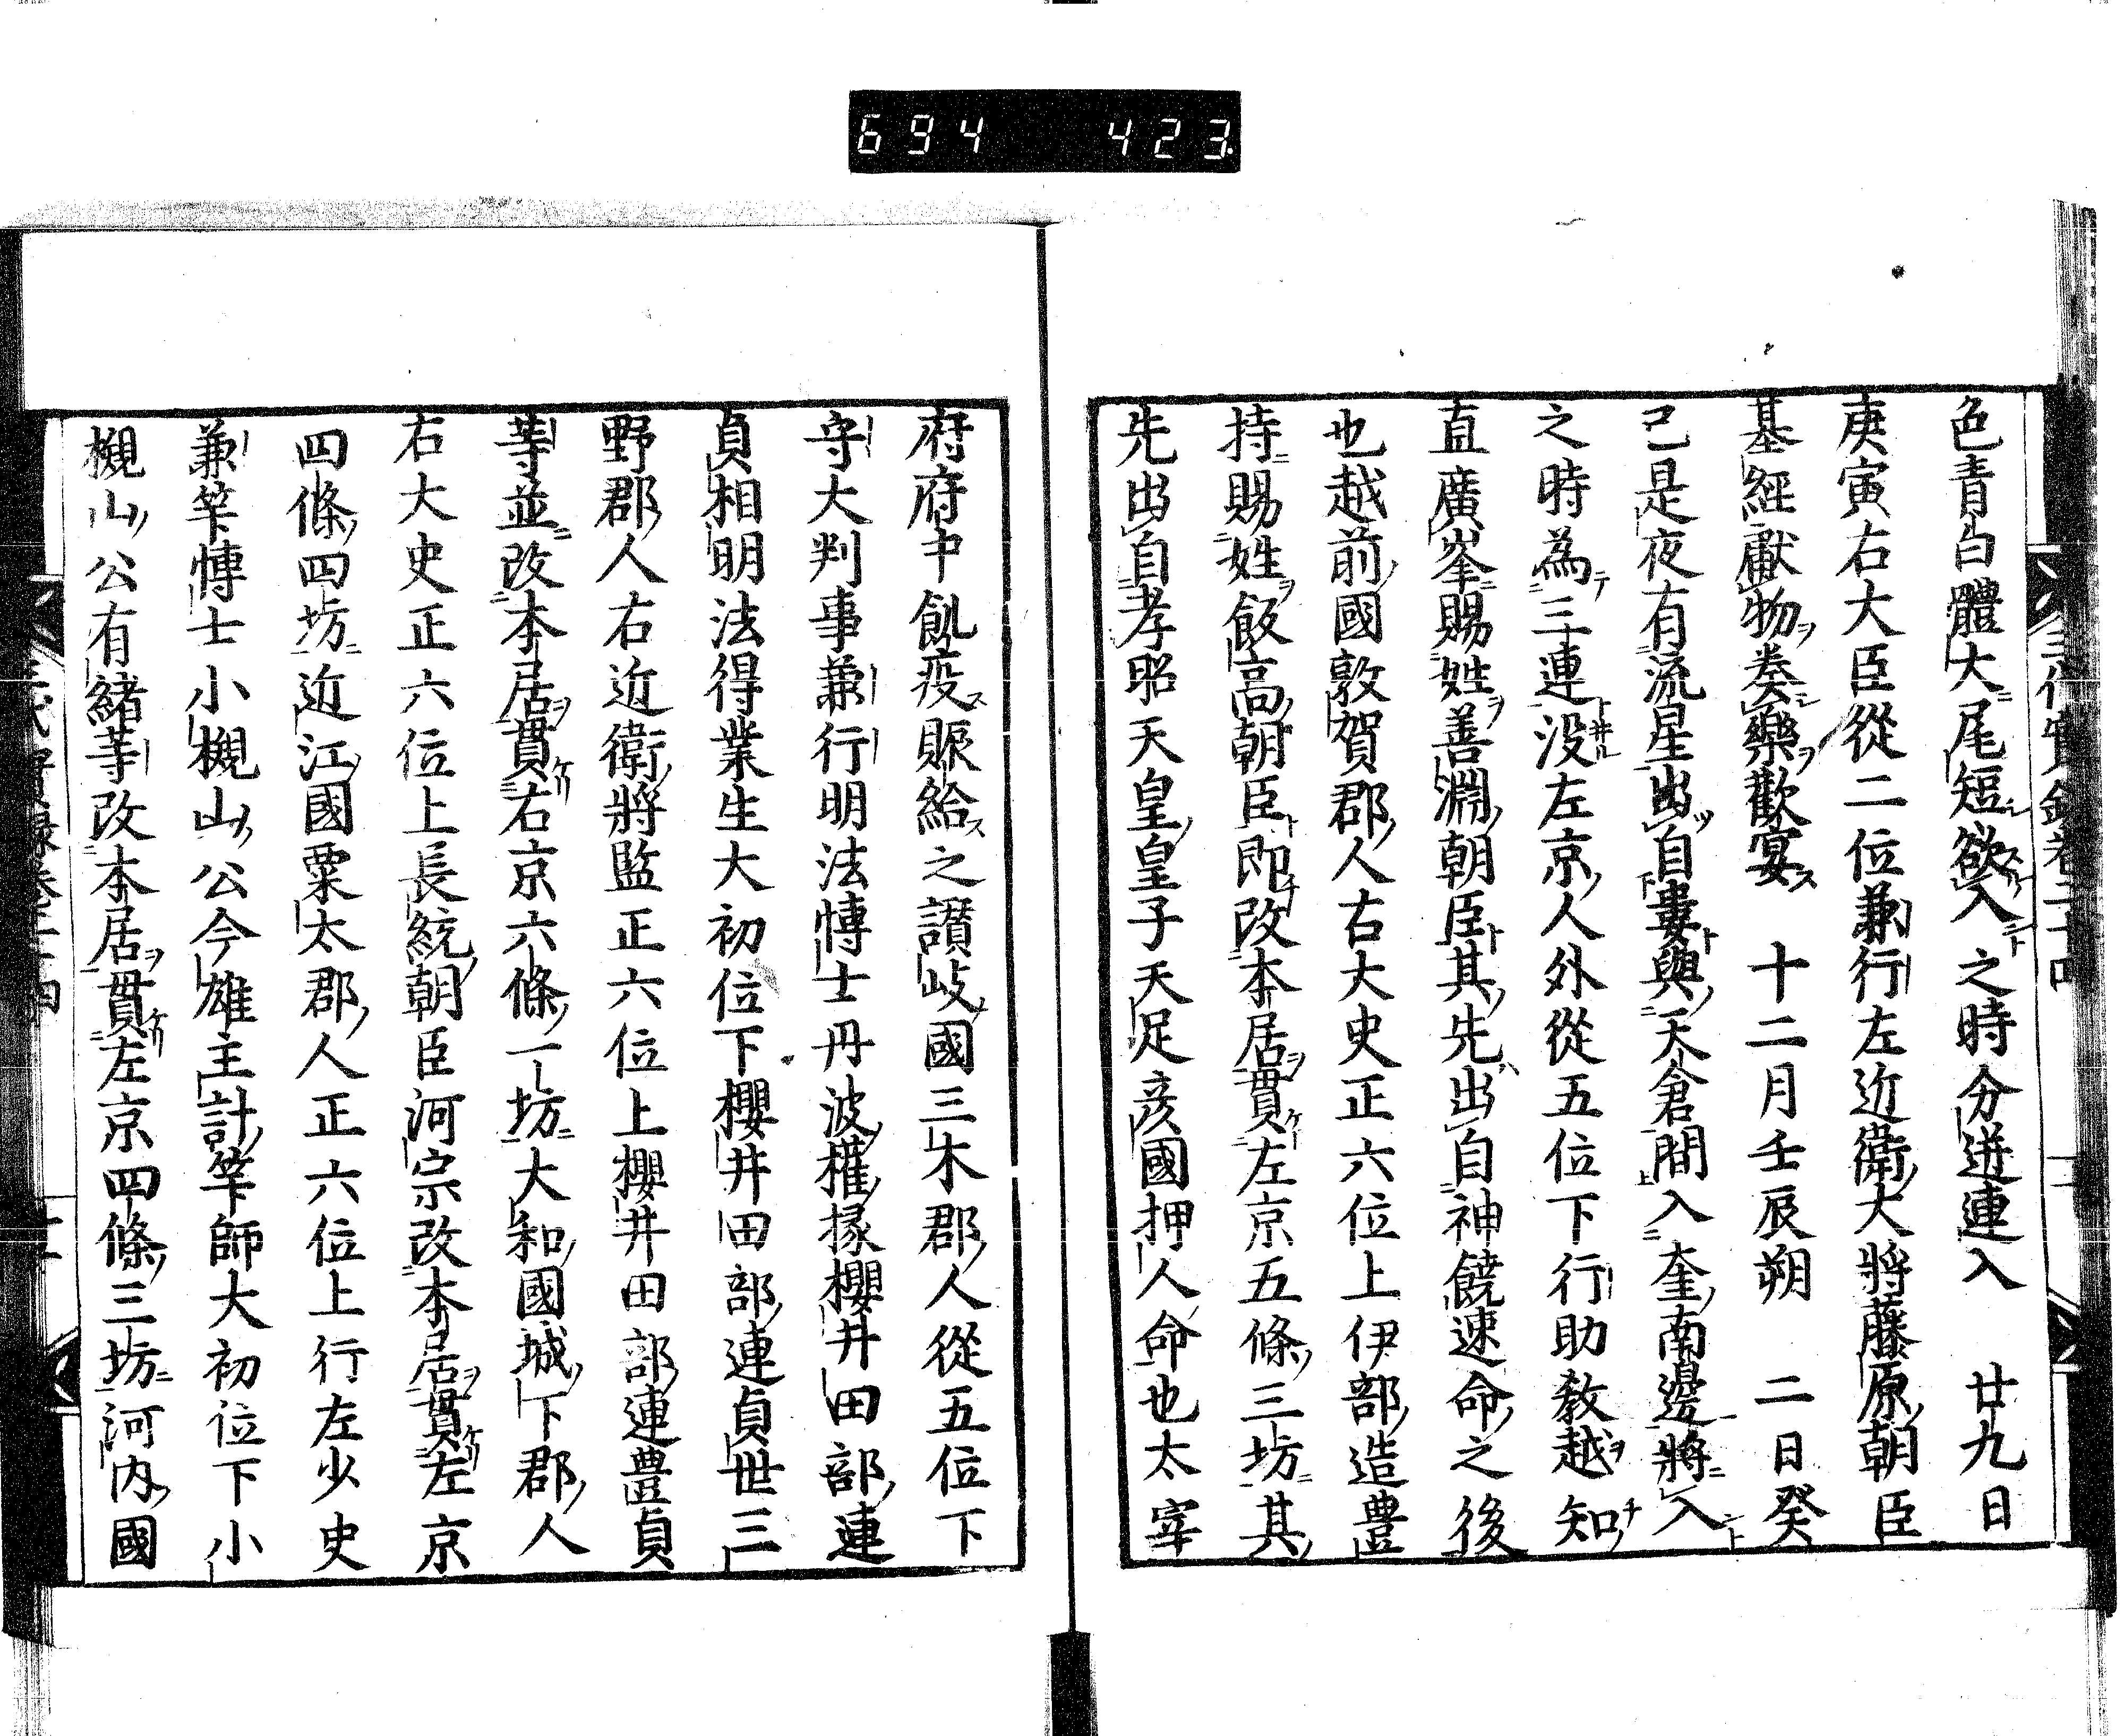 694 423
色青白體大尾短欲入之時分迸連入 廿九日
庚寅右大臣從二位兼行左近衛大將藤原朝臣
基經獻物奏樂歡宴 十二月壬辰朔 二日癸
已是夜有流星出自婁與天倉間入奎南邊將入
之時為三連没左京人外從五位下行助教越知
直廣峯賜姓善淵朝臣其先出自神饒速命之後
也越前國敦賀郡人右大史正六位上伊部造豊
持賜姓飯高朝臣即改本居貫左京五條三坊其
先出自孝昭天皇皇子天足彦國押人命也太宰
府府中飢疫賑給之讃岐國三木郡人從五位下
守大判事兼行明法博士丹波權掾櫻井田部連
貞相明法得業生大初位下櫻井田部連貞世三
野郡人右近衛將監正六位上櫻井田部連豊貞
等並改本居貫右京六條一坊大和國城下郡人
右大史正六位上長統朝臣河宗改本居貫左京
四條四坊近江國粟太郡人正六位上行左少史
兼筭博士小槻山公今雄主計筭師大初位下小
槻山公有緒等改本居貫左京四條三坊河内國